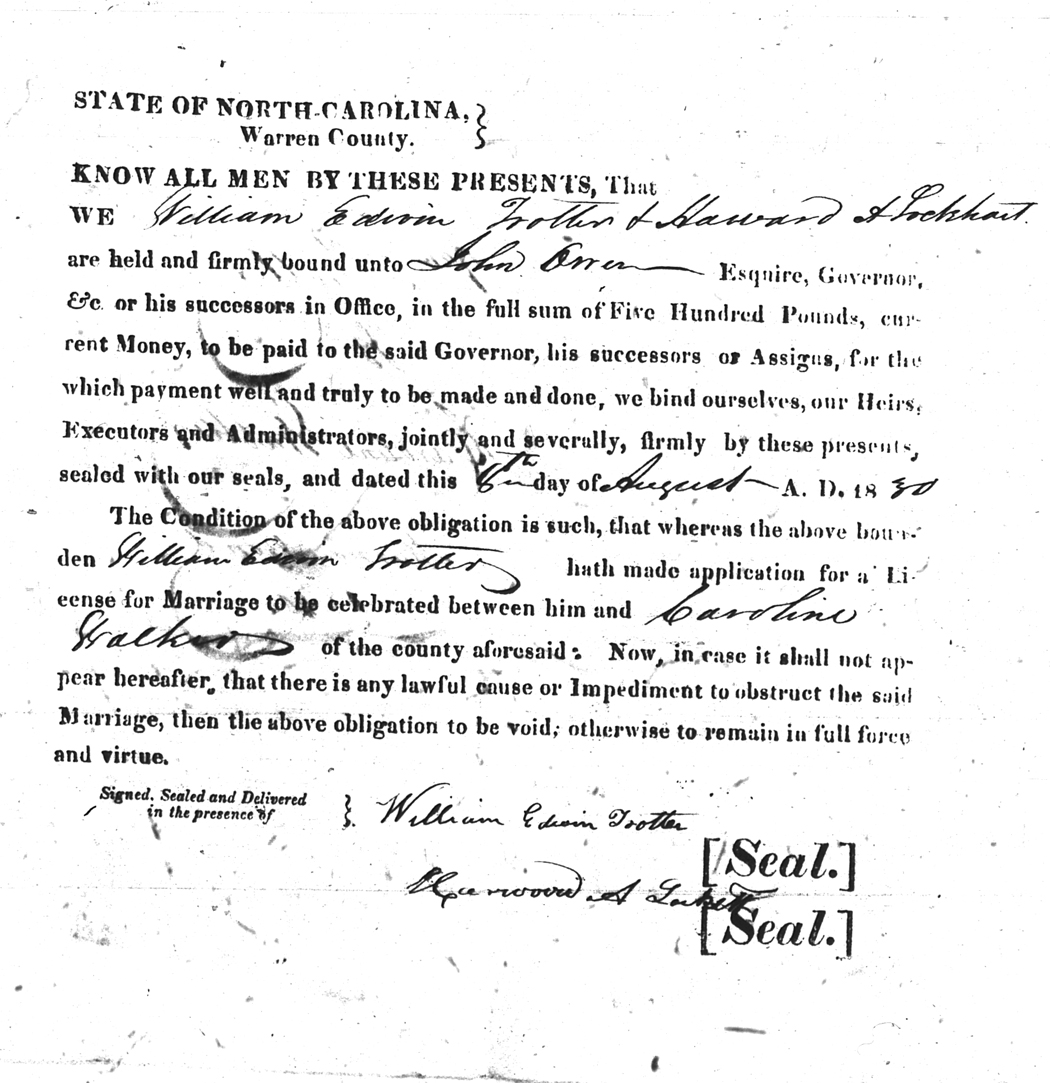 STATE OF NORTH-CAROLINA,
Warren County.
KNOW ALL MEN BY THESE PRESENTS, That
WE William Edwin Trotter & Haward A Lockhart
are held and firmly bound unto John Owen Esquire, Governor,
&c. or his successors in Office, in the full sum of Five Hundred Pounds, cur-
rent Money, to be paid to the said Governor, his successors or Assigns, for the
which payment well and truly to be made and done, we bind ourselves, our Heirs,
Executors and Administrators, jointly and severally, firmly by these presents,
sealed with our seals, and dated this day of August A. D. 1830
The Condition of the above obligation is such, that whereas the above boun-
den William Edwin Trotter hath made application for a Li-
cense for Marriage to be celebrated between him and Caroline
Walker of the county aforesaid: Now, in case it shall not ap-
pear hereafter, that there is any lawful cause or Impediment to obstruct the said
Marriage, then the above obligation to be void; otherwise to remain in full force
and virtue.
Signed, Sealed and Delivered
in the presence of
William Edwin Trotter
[Seal.]
Harwood A
[Seal.]